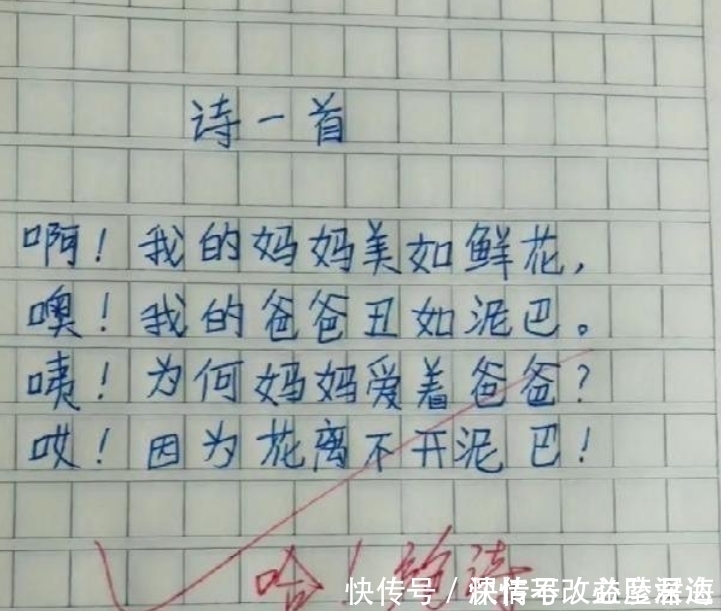 诗一首
啊！我的妈妈美如鲜花，
噢！我的爸爸丑如泥巴。
咦！为何妈妈爱着爸爸？
哎！因为花离不开泥巴！
哈！
快传号／